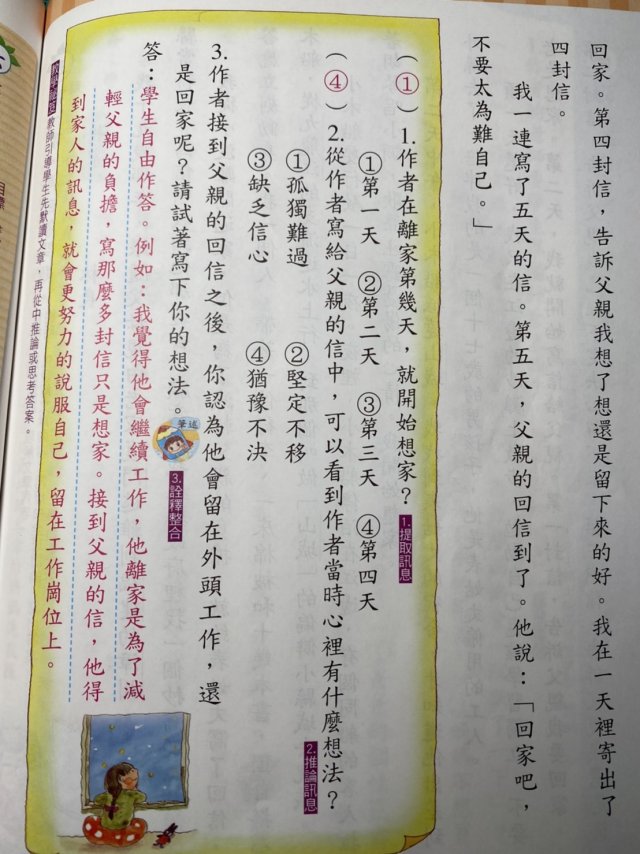 回家。第四封信，告訴父親我想了想還是留下來的好。我在一天裡寄出了
四封信。
我一連寫了五天的信。第五天，父親的回信到了。他說：「回家吧，
不要太為難自己。」
（①）1.作者在離家第幾天，就開始想家？ 1.提取訊息
①第一天 ②第二天 ③第三天 ④第四天
（④）2.從作者寫給父親的信中，可以看到作者當時心裡有什麼想法？ 2.推論訊息
①孤獨難過 ②堅定不移
③缺乏信心 ④猶豫不決
3.作者接到父親的回信之後，你認為他會留在外頭工作，還
是回家呢？請試著寫下你的想法。 筆述 3.詮釋整合
答：學生自由作答。例如：我覺得他會繼續工作，他離家是為了減
輕父親的負擔，寫那麼多封信只是想家。接到父親的信，他得
到家人的訊息，就會更努力的說服自己，留在工作崗位上。
教師引導學生先默讀文章，再從中推論或思考答案。
目標